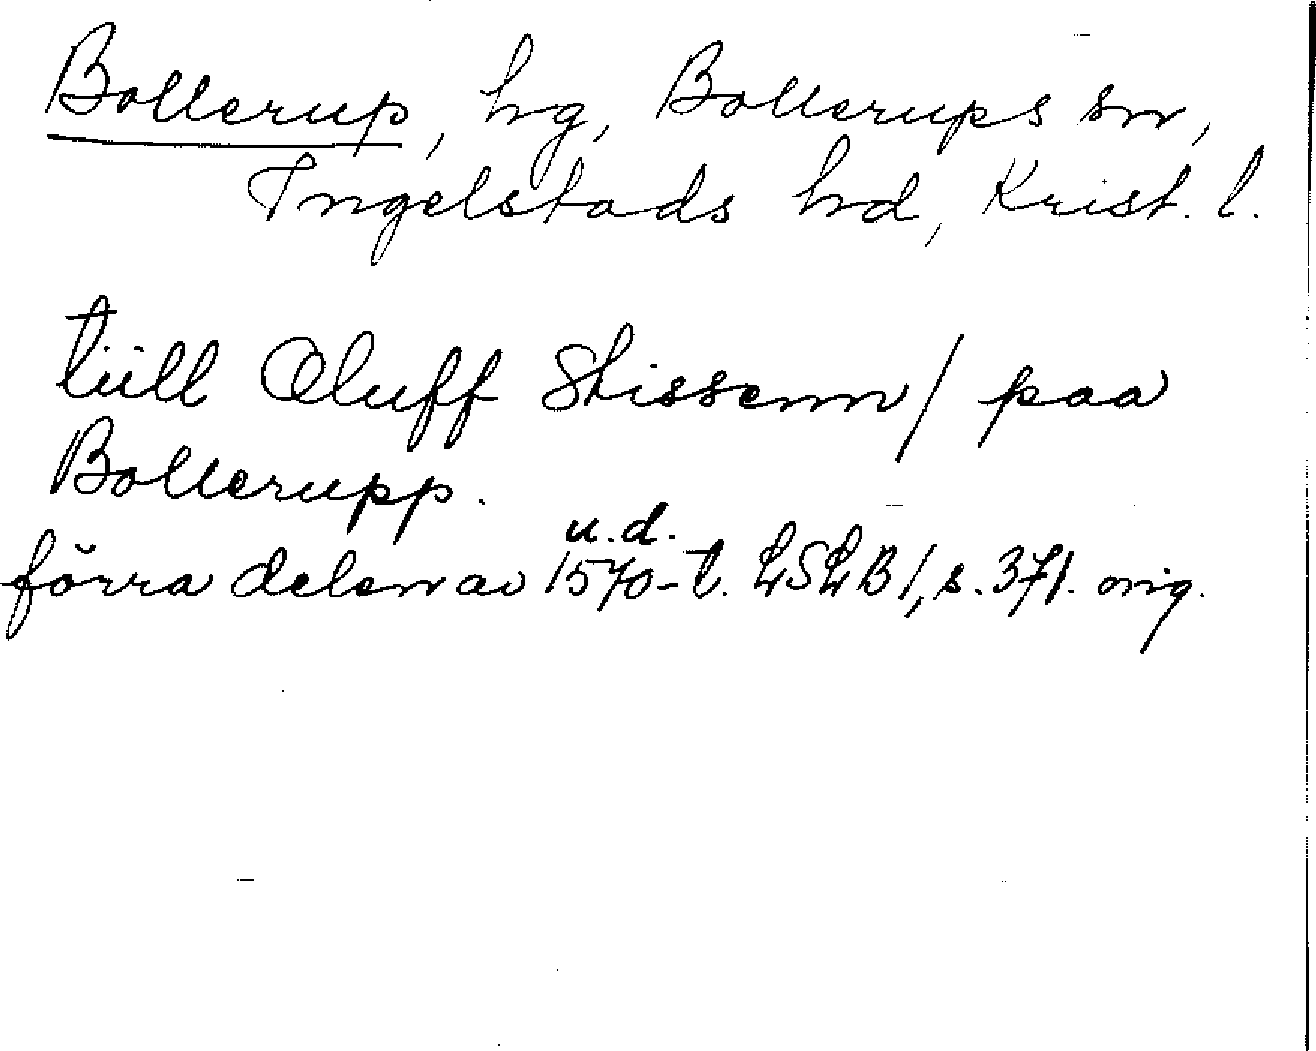 Bollerup, hg, Bollerups sn,
Ingelstads hd, Krist. l.
tiill Oluff Stissenn/ paa
Bollerupp.
u.d.
förra delen av 1570-t. LSLB 1, s. 371. orig.